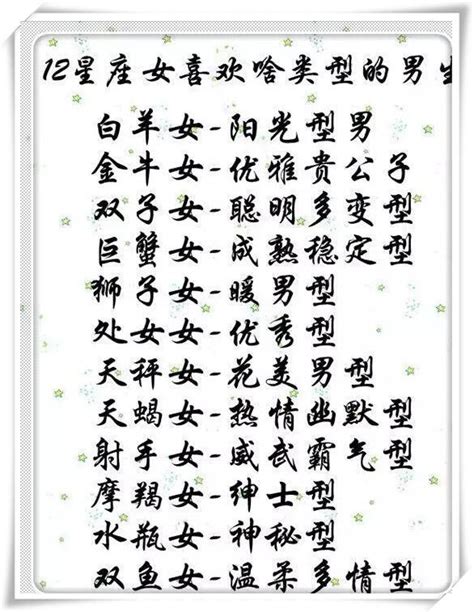 12星座女喜欢啥类型的男生
白羊女-阳光型男
金牛女-优雅贵公子
双子女-聪明多变型
巨蟹女-成熟稳定型
狮子女-暖男型
处女女-优秀型
天秤女-花美男型
天蝎女-热情幽默型
射手女-威武霸气型
摩羯女-绅士型
水瓶女-神秘型
双鱼女-温柔多情型